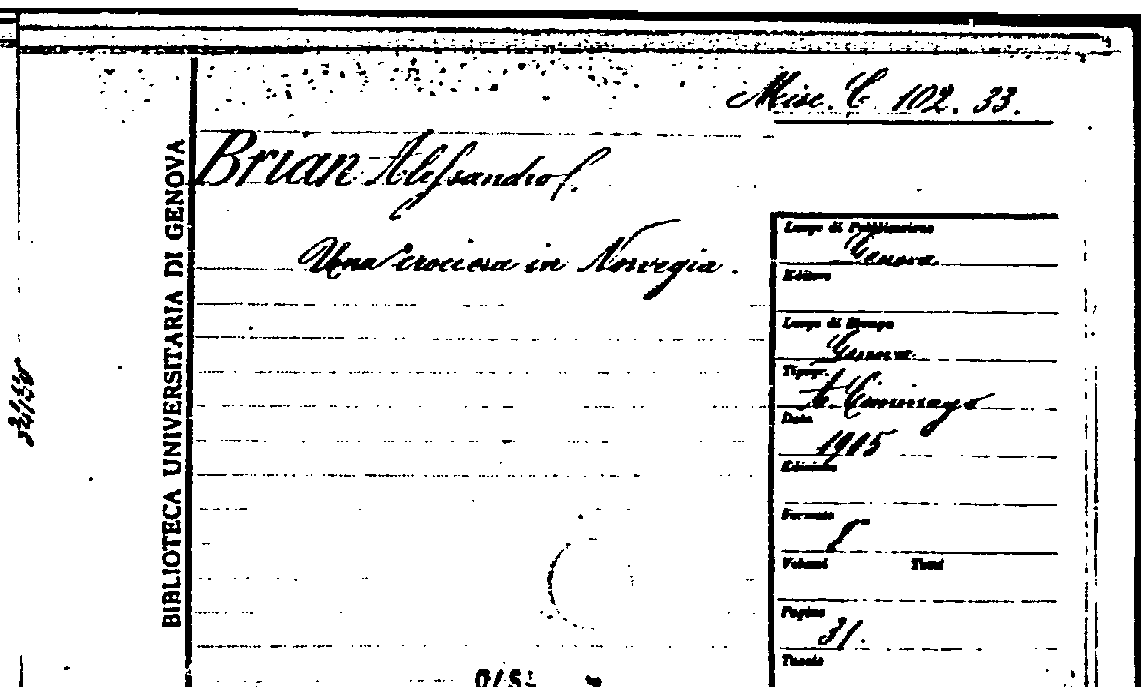 Misc. C. 102. 33.
Brian Alessandro.
Una crociera in Norvegia.
BIBLIOTECA UNIVERSITARIA DI GENOVA
Luogo di Pubblicazione
Genova
Editore
Luogo di Stampa
Genova
Tipogr.
A. Ciminago
Data
1915
Edizione
Formato
8°
Volumi Tomi
Pagine
31.
Tavole